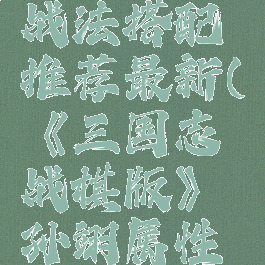 战法搭配
推荐最新(
《三国志
战棋版》
孙翊属性